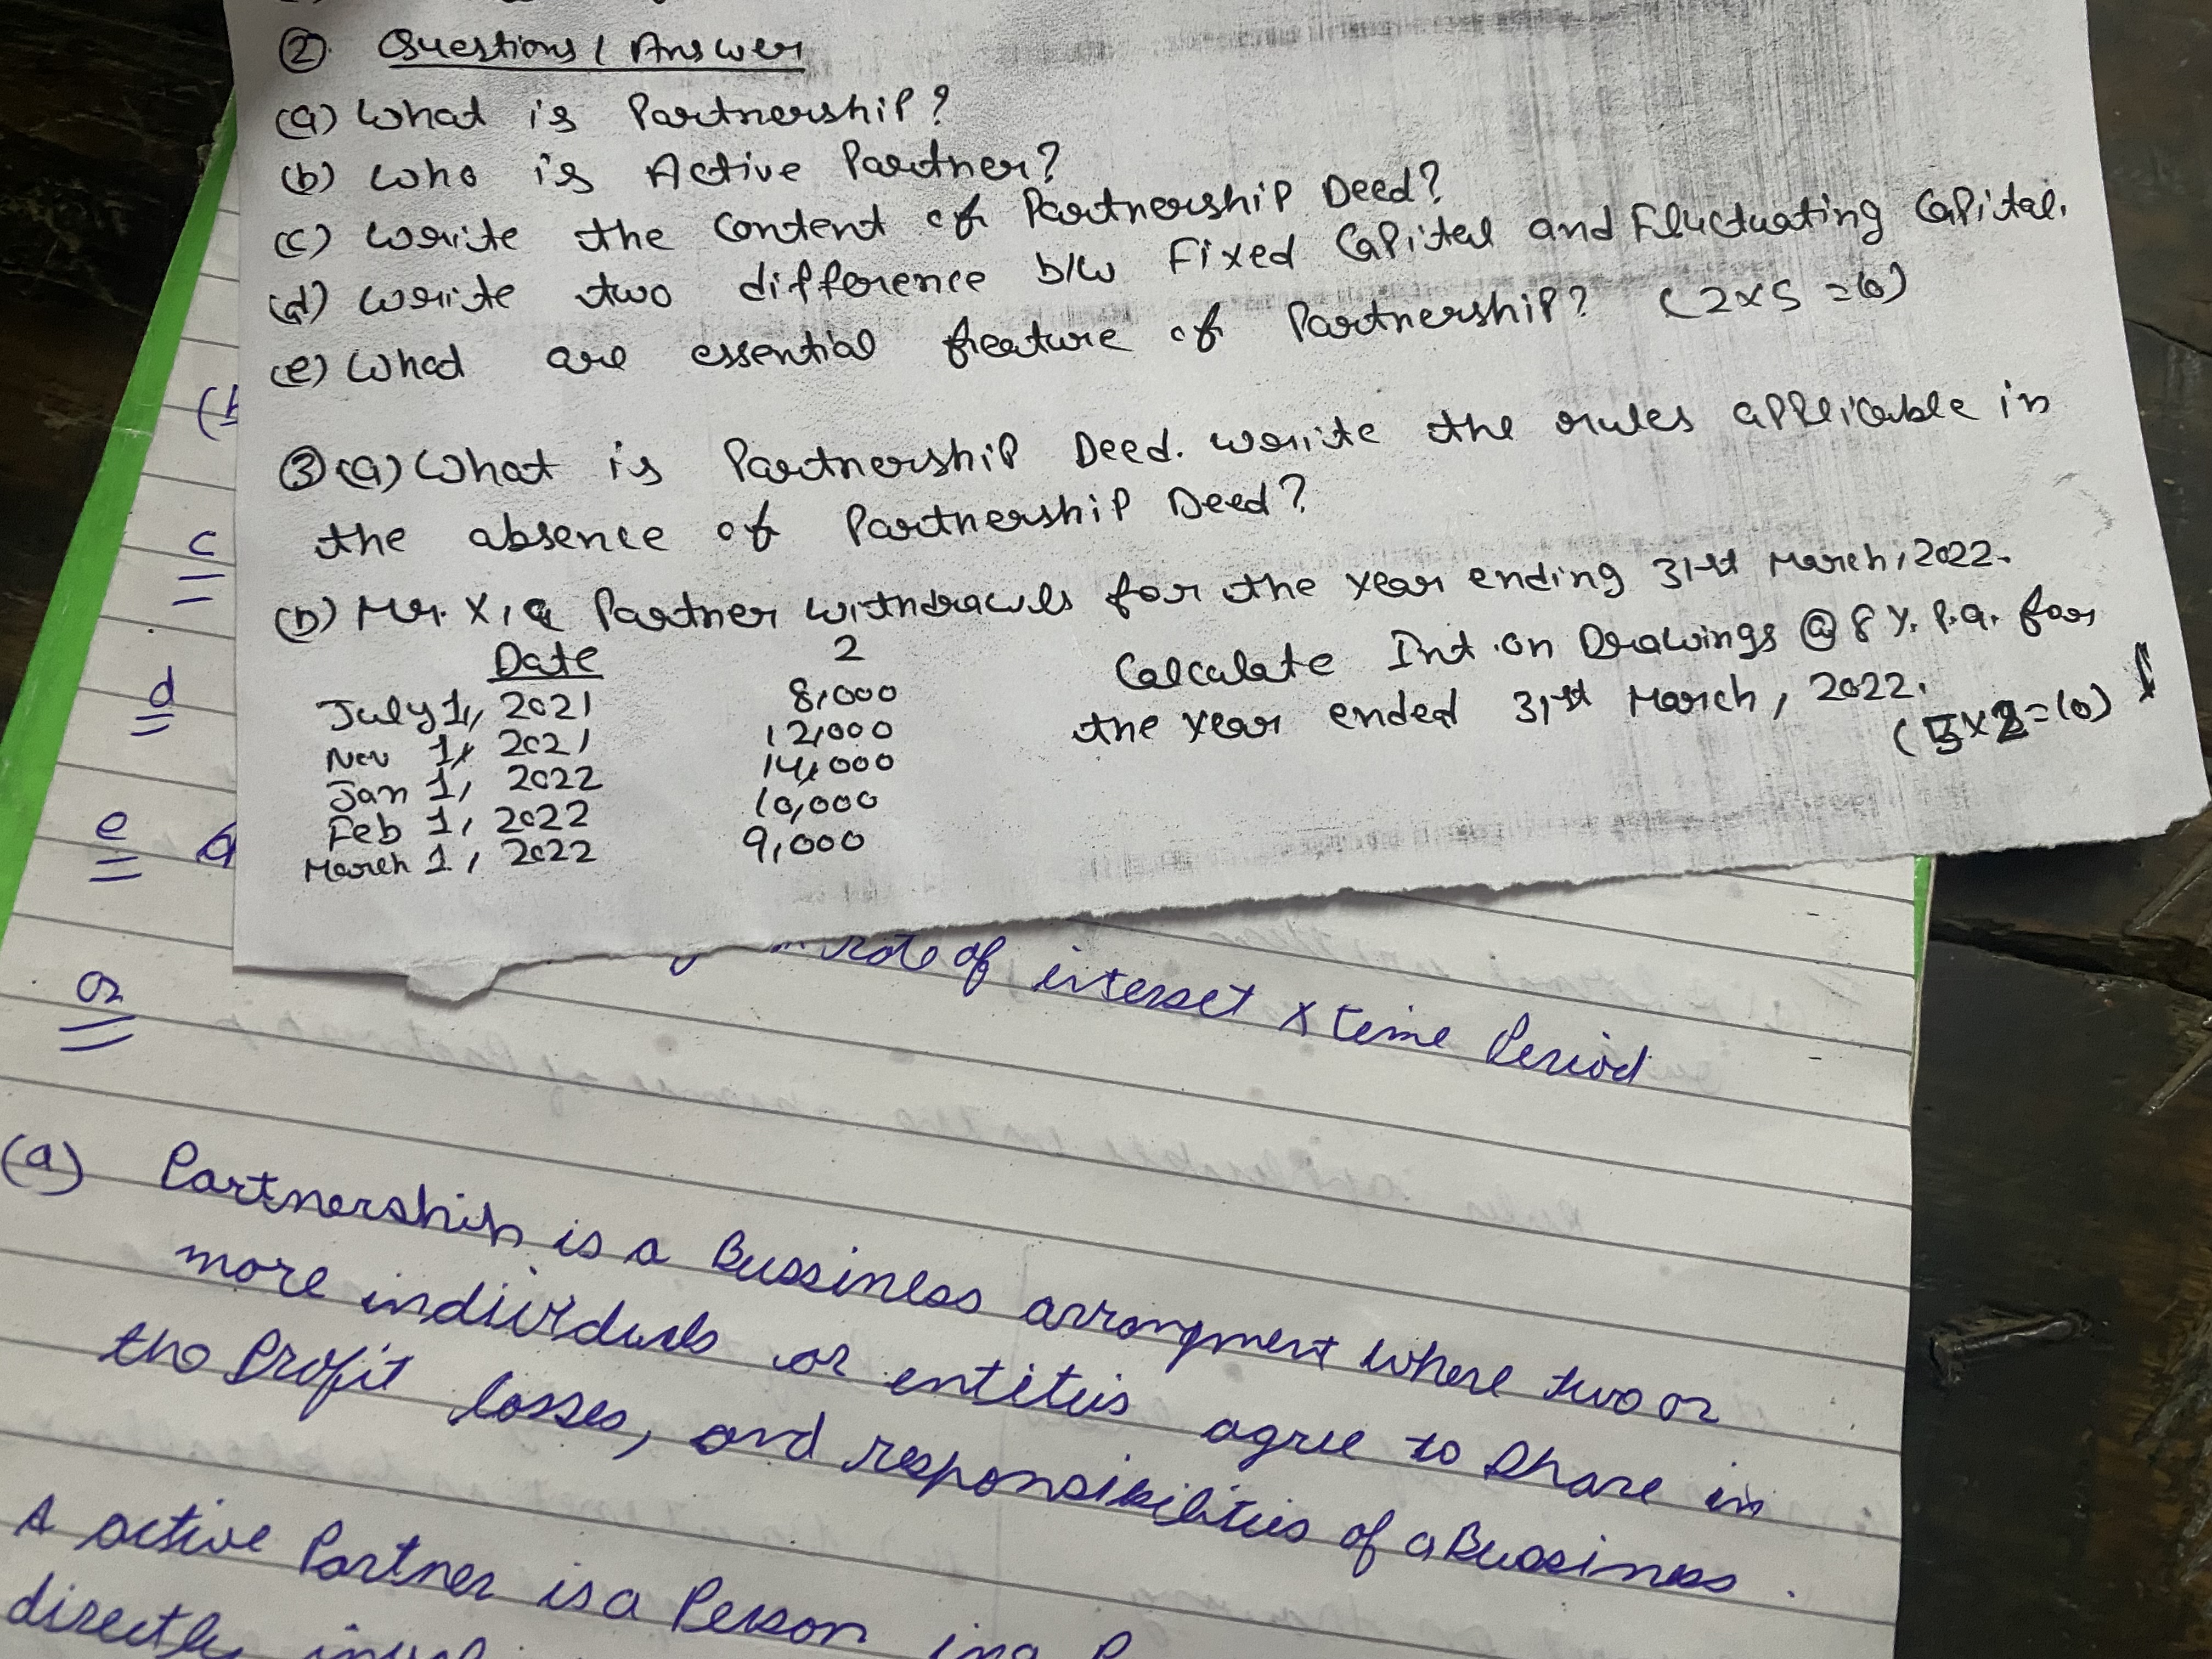 ② Questions / Answer
(a) What is Partnership?
(b) Who is Active Partner?
(c) Write the Content of Partnership Deed?
(d) Write two difference b/w Fixed Capital and Fluctuating Capital.
(e) What are essential feature of Partnership? (2x5=10)
③(a) What is Partnership Deed. Write the rules applicable in
the absence of Partnership Deed?
(b) Mr. X, a Partner withdrawls for the Year ending 31st March, 2022.
Date 2
July 1, 2021 8,000
Nov 1, 2021 12,000
Jan 1, 2022 14,000
Feb 1, 2022 10,000
March 1, 2022 9,000
Calculate Int. on Drawings @ 8 %. P.a. for
the Year ended 31st March, 2022.
(5x2=10)
c
d
e
or
rate of interset x teime Period
(a) Partnership is a Bussiness arrongment where two or
more individuals or entiteis agree to share in
the Profit losses, and responsibilities of a Bussiness.
A active Partner is a Person
directly